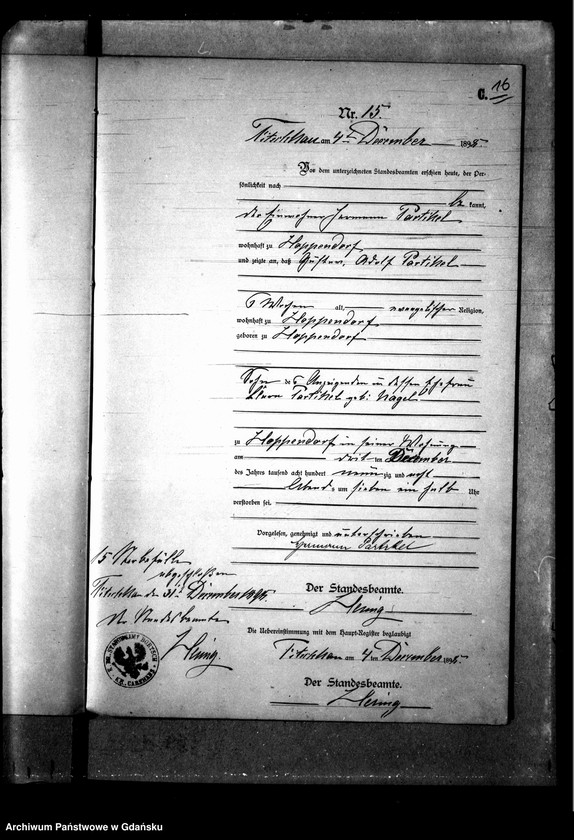 C. 16
Nr. 15.
am 4ten December 1898.
Vor dem unterzeichneten Standesbeamten erschien heute, der Per-
sönlichkeit nach
be kannt,
der Einwohner Hermann Partikel
wohnhaft zu Hoppendorf
und zeigte an, daß Gustav, Adolf Partikel
6 Wochen alt, evangelischer Religion,
wohnhaft zu Hoppendorf
geboren zu Hoppendorf
Sohn des Anzeigenden u dessen Ehefrau
Partikel geb. Nagel
zu Hoppendorf in seiner Wohnung
am drei ten December
des Jahres tausend acht hundert neun zig und acht
Abends um sieben ein halb Uhr
verstorben sei.
Vorgelesen, genehmigt und unterschrieben
Hermann Partikel
Der Standesbeamte.
Die Uebereinstimmung mit dem Haupt-Register beglaubigt
am 4 ten December 1898.
Der Standesbeamte.
15 Sterbefälle
abgeschlossen
den 31. December 1898.
Der Standesbeamte
KR. CARTHAUS
Archiwum Państwowe w Gdańsku